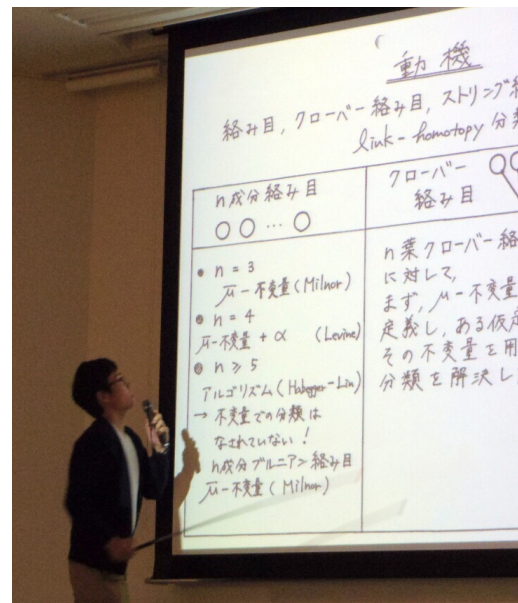 動機
絡み目, クローバー絡み目, ストリング
link-homotopy 分
n成分絡み目
○○…○
• n = 3
μ̄-不変量 (Milnor)
• n = 4
μ̄-不変量 + α (Levine)
• n ≥ 5
アルゴリズム (Habegger-Lin)
→ 不変量での分類は
なされていない!
n成分ブルニアン絡み目
μ̄-不変量 (Milnor)
クローバー
絡み目
n葉クローバー絡
に対して,
まず, μ-不変量
定義し, ある仮定
その不変量を用
分類を解決し